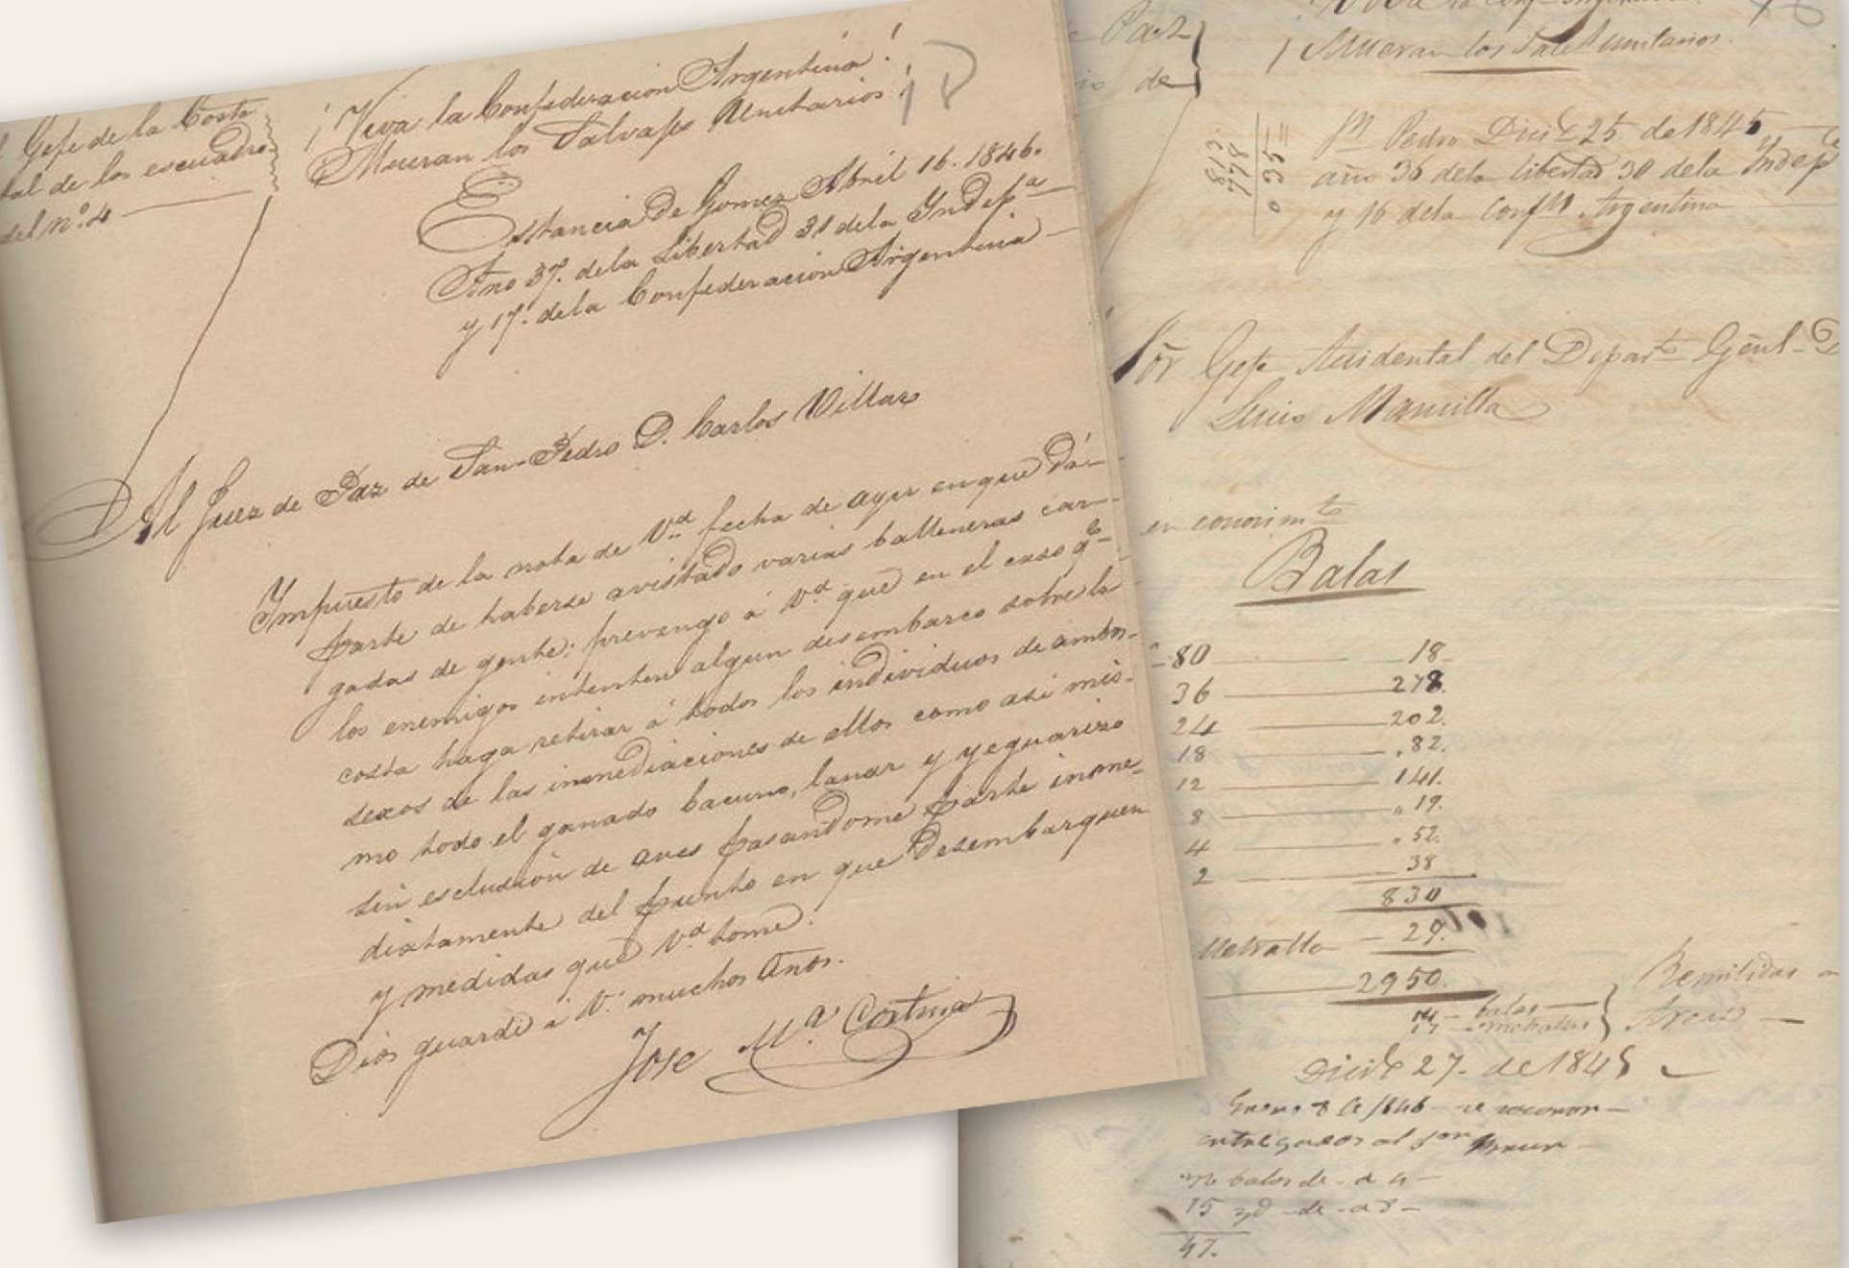 Gefe de la Costa
tal de los escuadro
del nº 4
¡Viva la Confederacion Argentina!
Mueran los Salvajes Unitarios!
Estancia de Gomez Abril 16. 1846.
Año 37. dela Libertad 31 dela Indepª
y 17. dela Confederacion Argentina
Al Juez de Paz de San-Pedro D. Carlos Villar
Impuesto de la nota de Vd fecha de ayer en que dá
parte de haberse avistado varias balleneras car-
gadas de gente: prevengo á Vd que en el caso qe
los enemigos intenten algun desembarco sobre la
costa haga retirar á todos los individuos de ambos
sexos de las inmediaciones de ellos como asi mis-
mo todo el ganado bacuno, lanar y yeguarizo
sin esclusion de aves pasandome parte inme-
diatamente del punto en que desembarquen
y medidas que Vd tome.
Dios guarde á V. muchos Años.
Jose Mª Cortina
Paz
de
¡Mueran los Salv Unitarios.
813
778
035
Sn Pedro Dice 25 de 1845
año 36 dela libertad 30 dela Indepe
y 16 dela Confn Argentina
Sor Gefe Accidental del Departo Genl
Lucio Mancilla
en conocimto
Balas
80 18
36 278
24 202
18 82
12 141
8 19
4 52
2 38
830
Metralla 29
2950
balas
metrallas
Remitidas a
Dice 27. de 1845
Enero 8 de 1846
entregados al Sor
balas de a 4
15 yd de a 8
47.